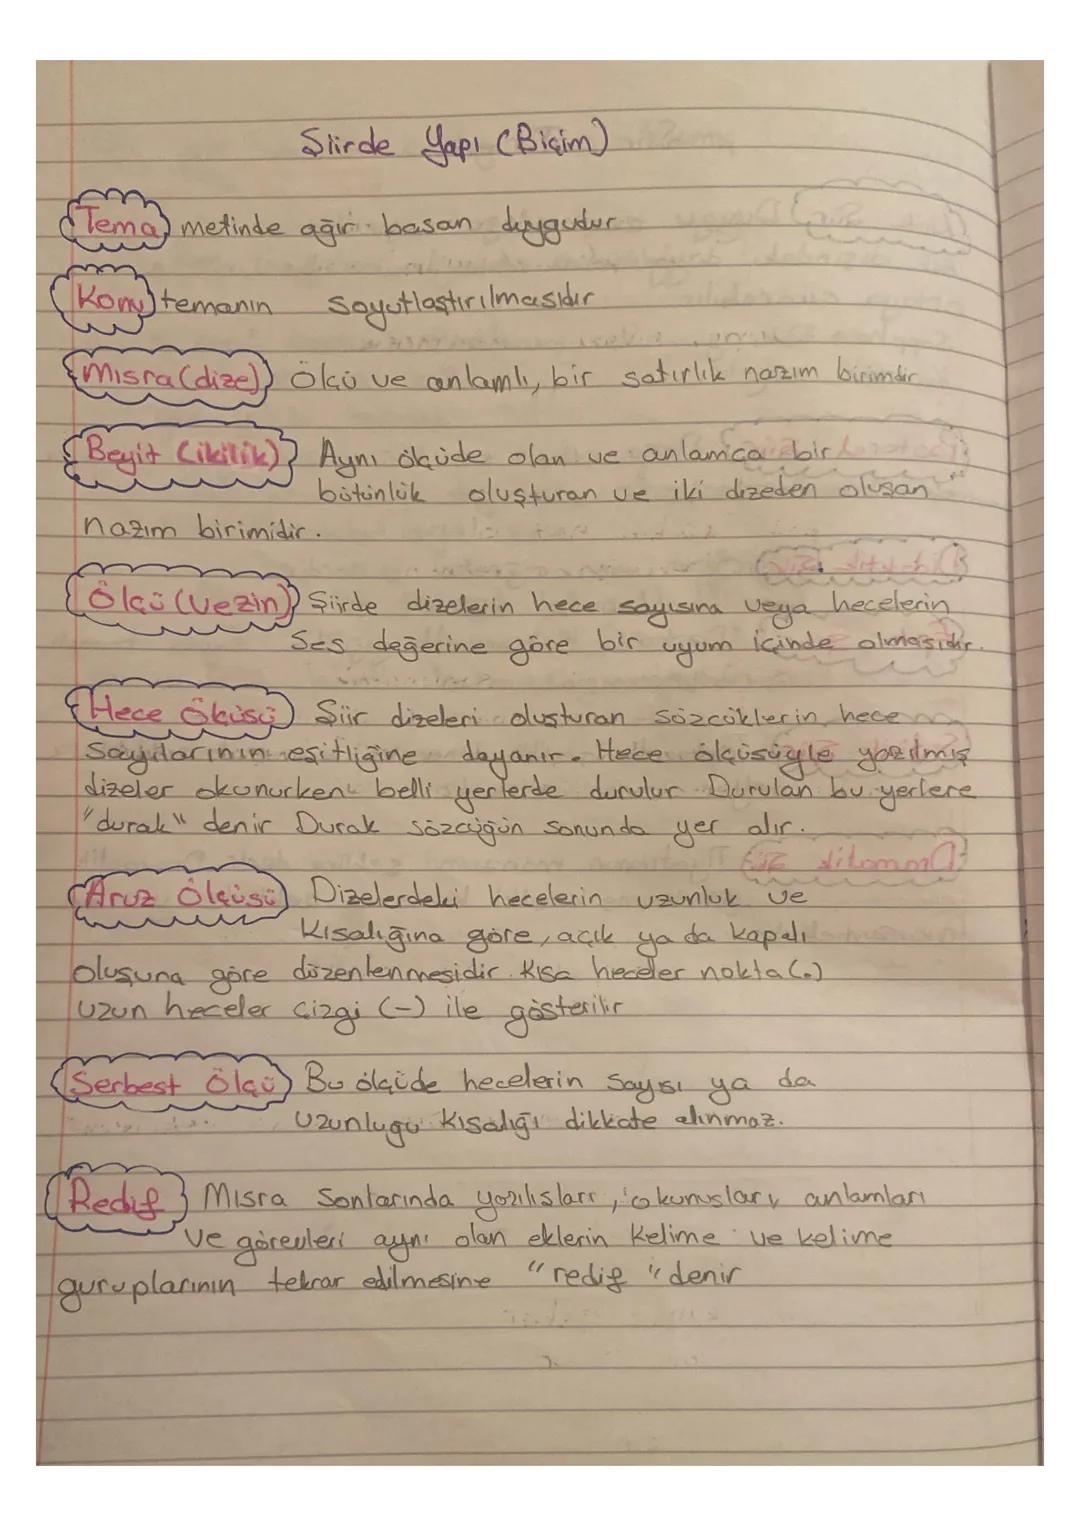 Şiirde Yapı (Biçim)
Tema metinde ağır basan duygudur
Konu temanın soyutlaştırılmasıdır
Mısra (dize) Ölçü ve anlamlı, bir satırlık nazım birimdir
Beyit (ikilik) Aynı ölçüde olan ve anlamca bir
bütünlük oluşturan ve iki dizeden oluşan
nazım birimidir.
Ölçü (Vezin) Şiirde dizelerin hece sayısına veya hecelerin
Ses değerine göre bir uyum içinde olmasıdır.
Hece Ölçüsü Şiir dizeleri oluşturan sözcüklerin hece
Sayılarının eşitliğine dayanır. Hece ölçüsüyle yazılmış
dizeler okunurken belli yerlerde durulur Durulan bu yerlere
"durak" denir Durak sözcüğün sonunda yer alır.
Aruz Ölçüsü Dizelerdeki hecelerin uzunluk ve
Kısalığına göre, açık ya da kapalı
oluşuna göre düzenlenmesidir. Kısa heceler nokta (.)
uzun heceler çizgi (-) ile gösterilir
Serbest Ölçü Bu ölçüde hecelerin sayısı ya da
uzunluğu kısalığı dikkate alınmaz.
Redif Mısra Sonlarında yazılışları, okunuşları, anlamları
ve görevleri aynı olan eklerin kelime ve kelime
guruplarının tekrar edilmesine "redif" denir